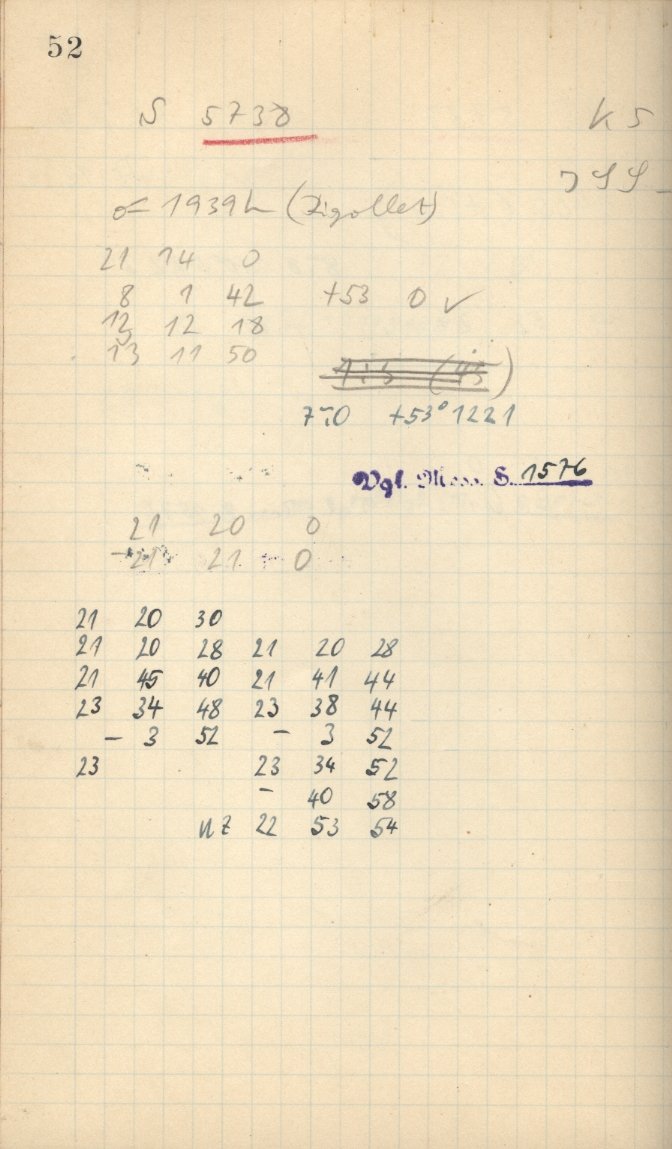 52
S 5738
K 5
☄ 1939h (Rigollet)
21 14 0
8 1 42 +53 0 ✓
12 12 18
13 11 50
7m0 +53° 1221
Vgl. Mess. S. 1576
21 20 0
- 21 21 0
21 20 30
21 20 28 21 20 28
21 45 40 21 41 44
23 34 48 23 38 44
- 3 52 - 3 52
23 23 34 52
- 40 58
MZ 22 53 54